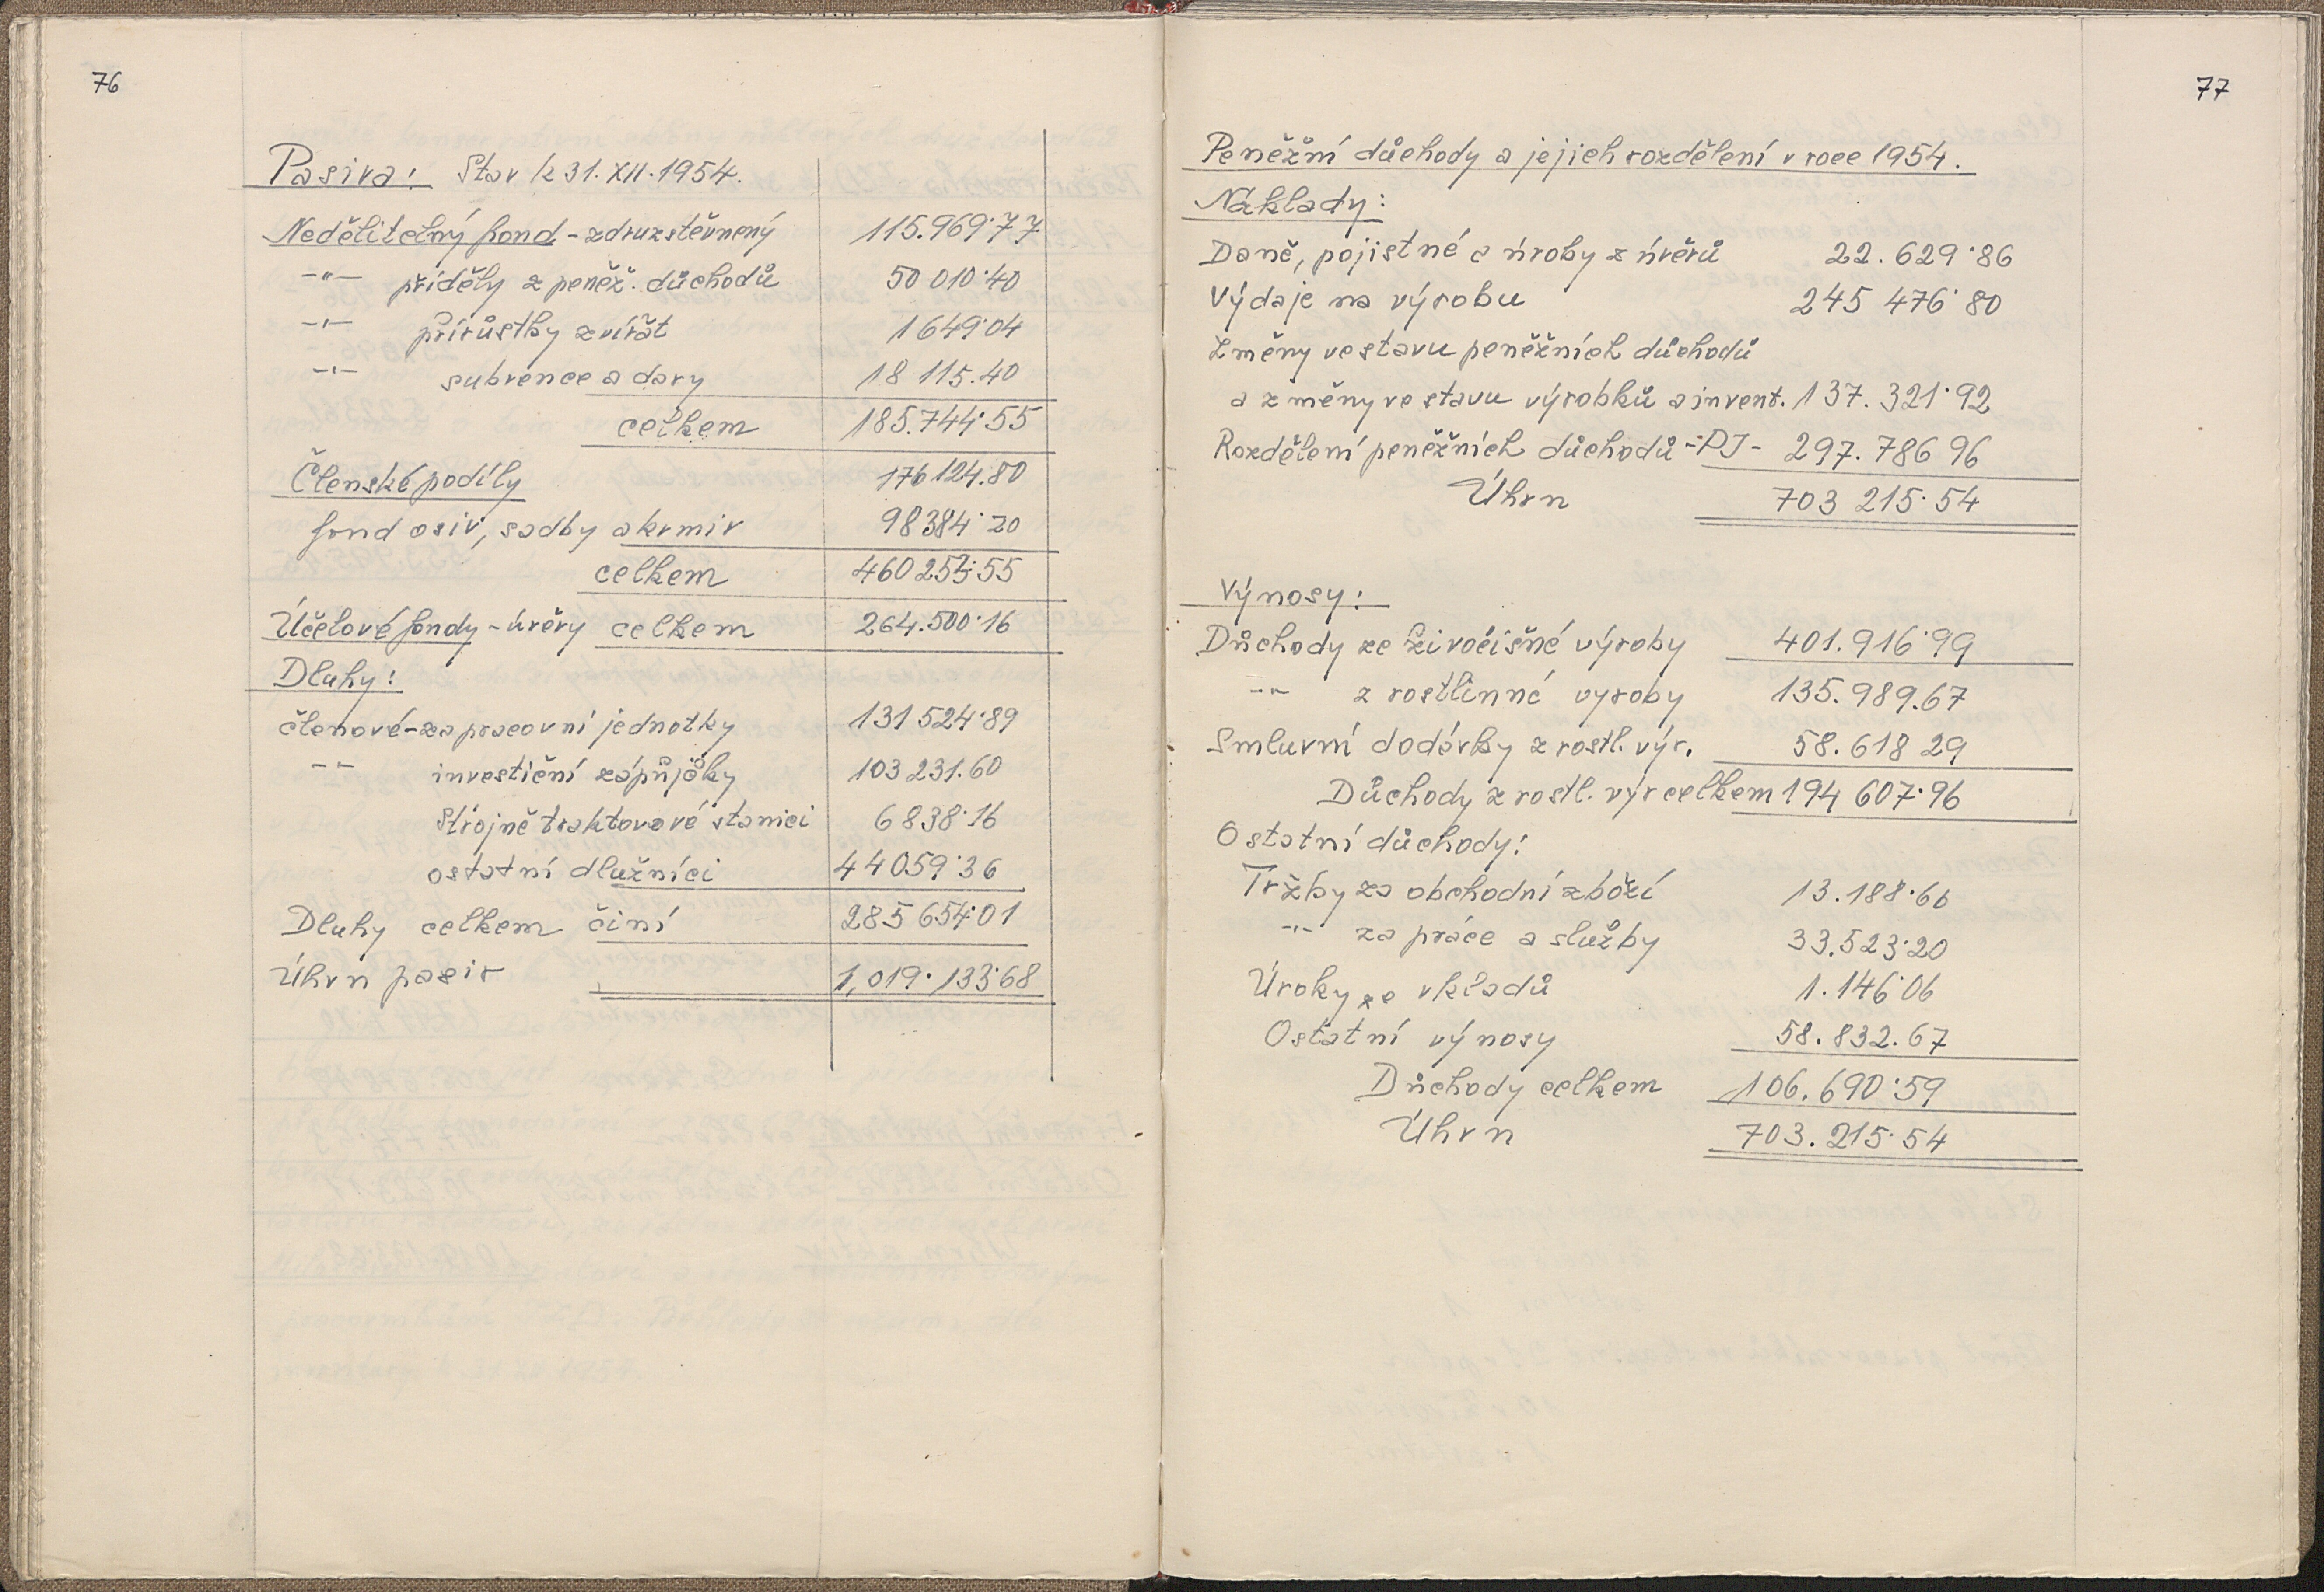 76
Pasiva: Stav k 31. XII. 1954.
Nedělitelný fond - zdruzstěvnený 115.969·77
-"- příděly z peněž. důchodů 50 010·40
-"- přírůstky zvířat 1 649·04
-"- subvence a dary 18 115.40
celkem 185.744·55
Členské podíly 176 124.80
fond osiv, sadby a krmiv 98 384·20
celkem 460 253·55
Účelové fondy - úvěry celkem 264.500·16
Dluhy:
členové - za pracovní jednotky 131 524·89
-"- investiční zápůjčky 103 231.60
Strojně traktorové stanici 6 838·16
ostatní dlužníci 44 059·36
Dluhy celkem činí 285 654·01
Úhrn pasiv 1,019·133·68
77
Peněžní důchody a jejich rozdělení v roce 1954.
Náklady:
Daně, pojistné a úroky z úvěrů 22.629·86
Výdaje na výrobu 245 476·80
Změny ve stavu peněžních důchodů
a změny ve stavu výrobků a invent. 137.321·92
Rozdělení peněžních důchodů - PJ - 297.786 96
Úhrn 703 215·54
Výnosy:
Důchody ze živočišné výroby 401.916·99
-"- z rostlinné vyroby 135.989.67
Smluvní dodávky z rostl. výr. 58.618 29
Důchody z rostl. výr celkem 194 607·96
Ostatní důchody:
Tržby za obchodní zboží 13.188·66
-"- za práce a služby 33.523·20
Úroky ze vkladů 1.146·06
Ostatní výnosy 58.832.67
Důchody celkem 106.690·59
Úhrn 703.215·54